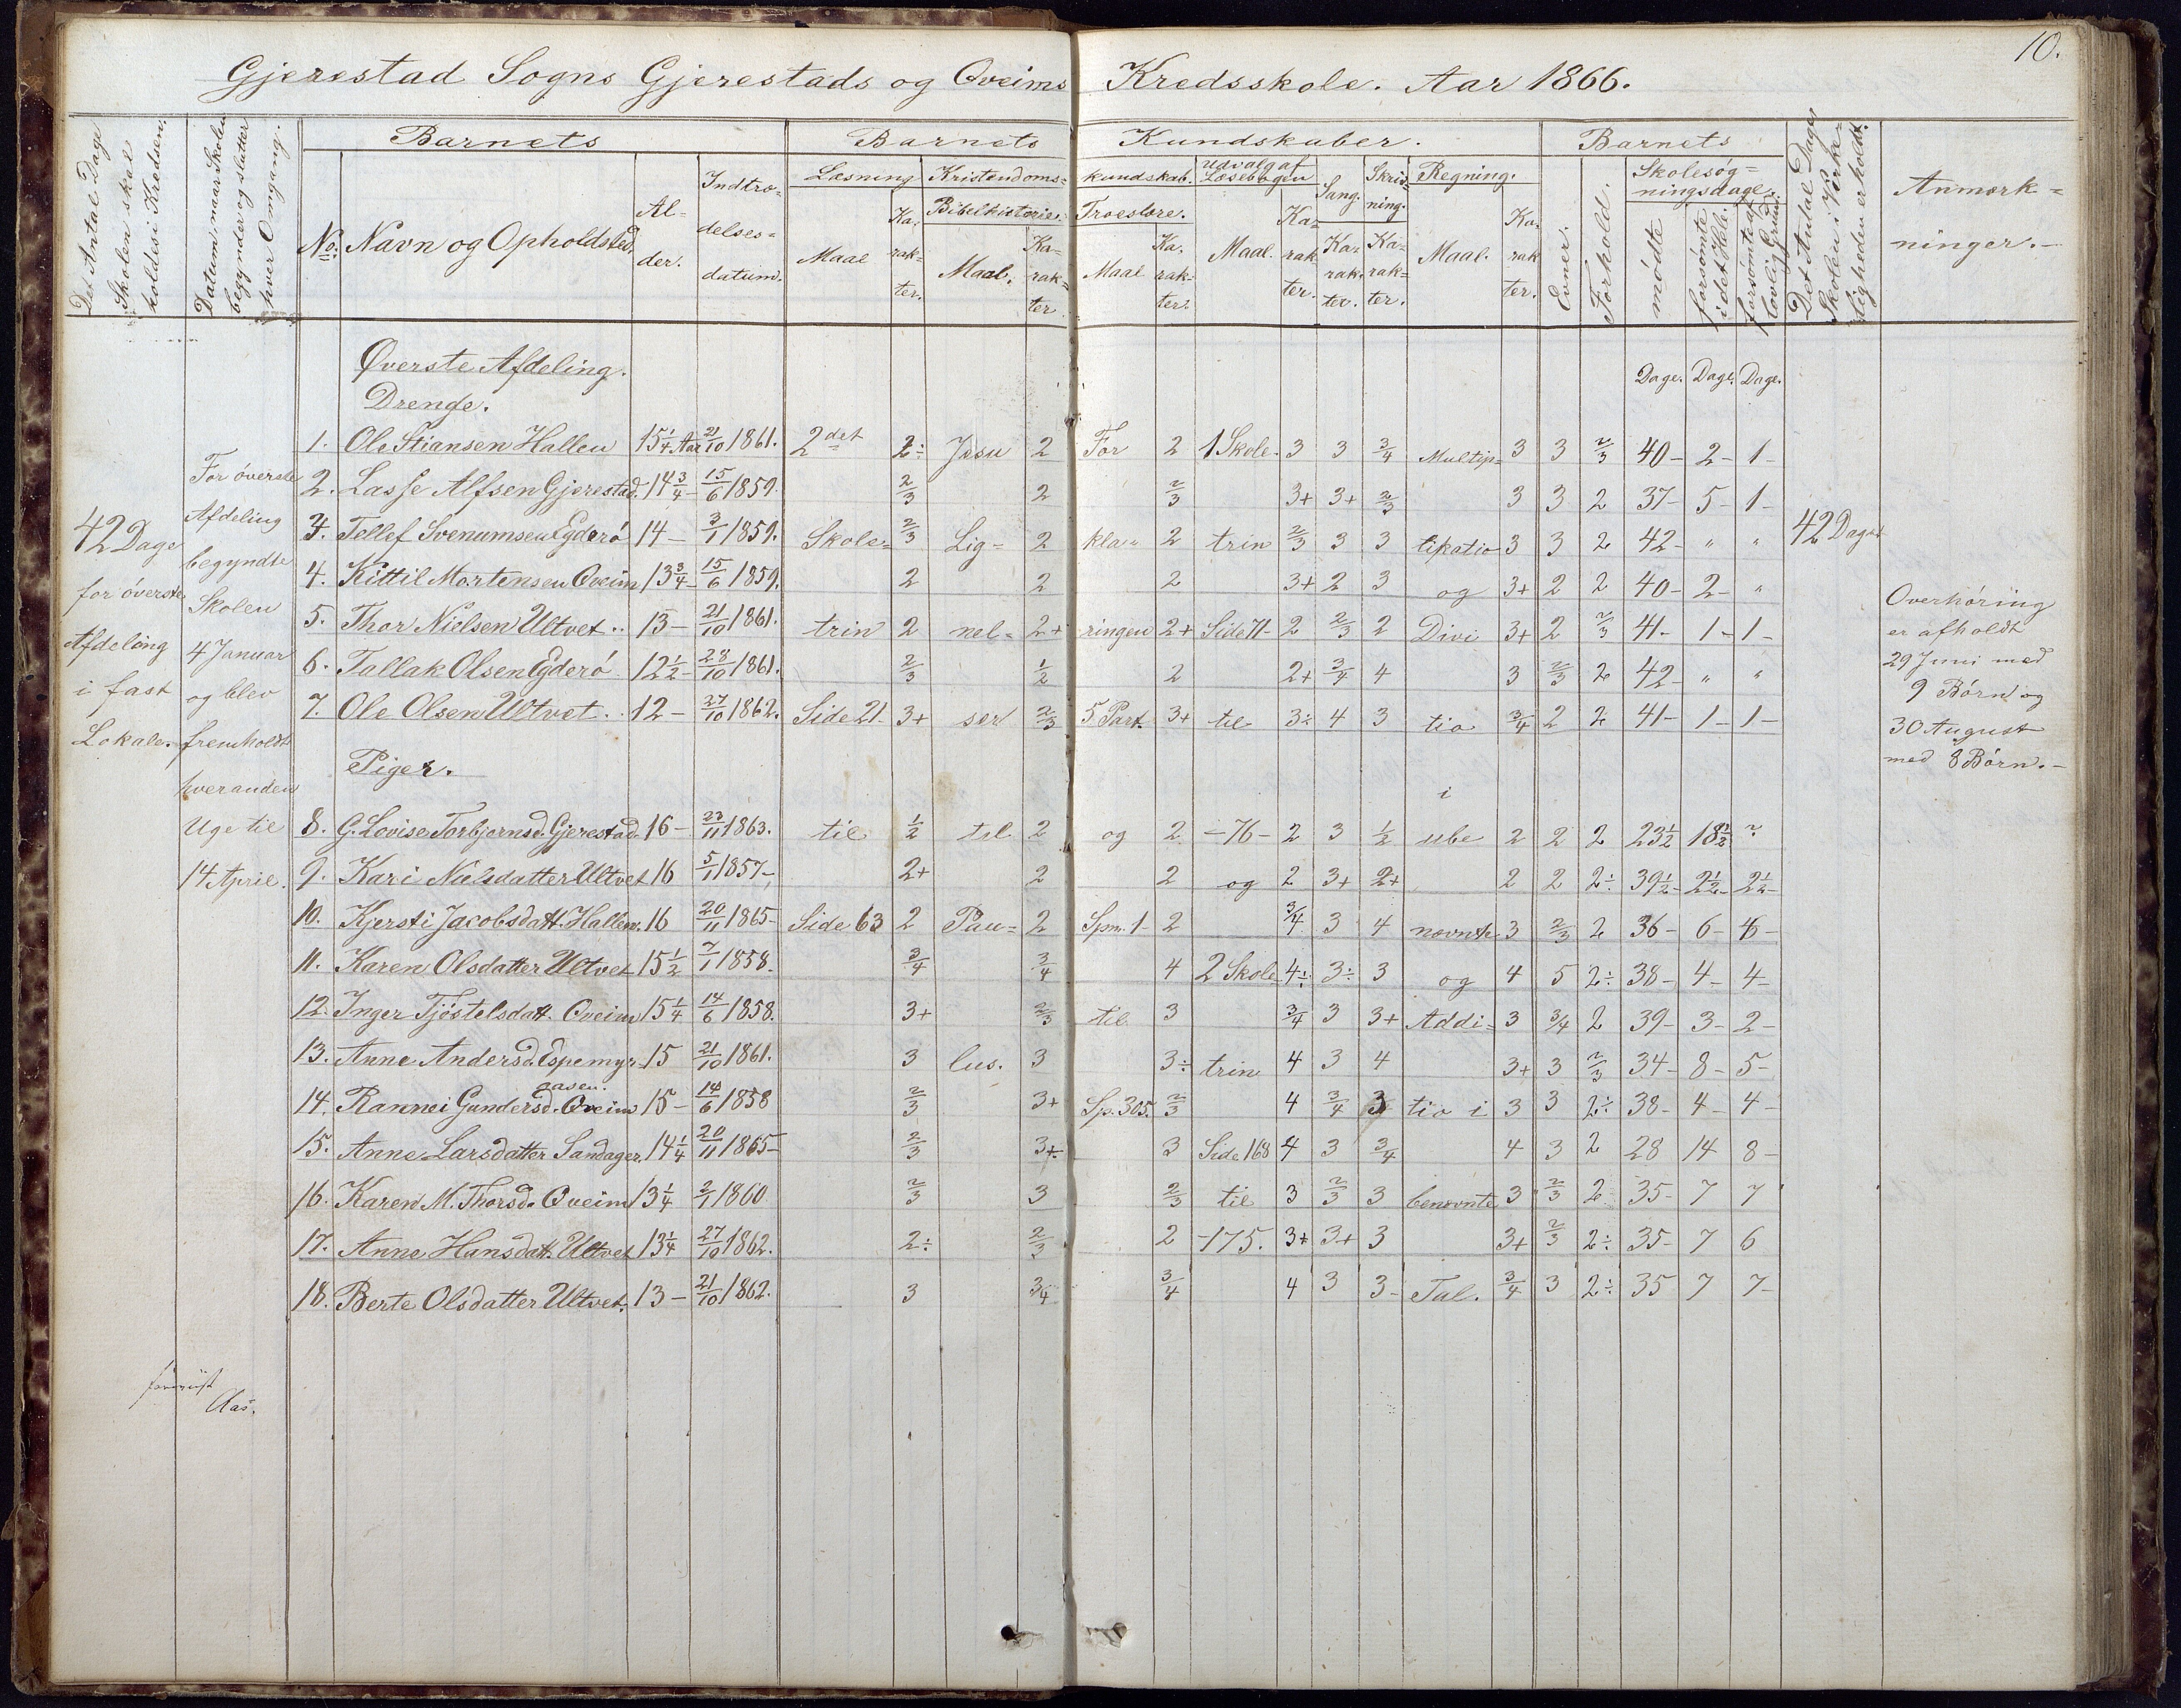 10.
Gjerestad Sogns Gjerestads og Qveims Kredsskole. Aar 1866.
Det Antal Dage Skolen skal holdes i Kredsen.
Datum, naar Skolen begynder og slutter hver Omgang.
Barnets
No. Navn og Opholdsted.
Al-
der.
Indtræ-
delses-
datum.
Barnets Kundskaber.
Læsning
Maal
Ka-
rak-
ter.
Kristendoms-
kundskab.
Bibelhistorie.
Maal.
Ka-
rak-
ter
Troeslære.
Maal
Ka-
rak-
ter.
Udvalg af
Læsebogen
Maal.
Ka-
rak-
ter.
Sang.
Ka-
rak-
ter.
Skriv-
ning.
Ka-
rak-
ter.
Regning.
Maal.
Ka-
rak
ter.
Barnets
Evner.
Forhold.
Skolesøg-
ningsdage.
mødte
forsømte i det Hele.
forsømte af lovlig Grund
Det Antal Dage Skolen i Virke-
ligheden er holdt.
Anmærk-
ninger.-
Øverste Afdeling.
Drenge.
Dage. Dage. Dage.
1. Ole Stiansen Hallen 15 1/4 Aar 21/10 1861. 2det 2÷ Jesu 2 For 2 1 Skole- 3 3 3/4 Multip- 3 3 2/3 40- 2- 1-
2. Lasse Alfsen Gjerestad. 14 3/4- 15/6 1859. 2/3 2 2/3 3+ 3+ 2/3 3 3 2 37- 5- 1-
3. Tellef Svenumsen Egderø 14- 3/1 1859. Skole- 2/3 Lig- 2 kla- 2 trin 2/3 3 3 likatio 3 3 2 42- " "
4. Kittil Mortensen Qveim 13 3/4- 15/6 1859. 2 2 2 3+ 2 3 og 3+ 2 2 40- 2- "
5. Thor Nielsen Ultvet.. 13- 21/10 1861. trin 2 nel- 2+ ringen 2+ Side 71- 2 2/3 2 Divi 3+ 2 2/3 41- 1- 1-
6. Tallak Olsen Egderø 12 1/2- 28/10 1861. 2/3 1/2 2 2+ 3/4 4 3 2/3 2 42- " "
7. Ole Olsen Ultvet.. 12- 27/10 1862. Side 21- 3+ ser 2/3 5. Part. 3+ til 3÷ 4 3 tio 3/4 2 2 41- 1- 1-
Piger.
i
8. G. Lovise Torbjørnsd. Gjerestad 16- 23/11 1863. til 1/2 til 2 og 2 -76- 2 3 1/2 ube 2 2 2 23 1/2 18 1/2 ?
9. Kari Nielsdatter Ultvet 16 5/1 1857- 2+ 2 2 og 2 3+ 2+ 2 2 2÷ 39 1/2- 2 1/2- 2 1/2-
10. Kjersti Jacobsdatt. Hallen. 16 20/11 1865- Side 63 2 Pau- 2 Spm. 1- 2 3/4 3 4 nævnte 3 2/3 2 36- 6- 6-
11. Karen Olsdatter Ultvet 15 1/2 7/1 1858. 3/4 3/4 4 2 Skole- 4÷ 3÷ 3 og 4 5 2÷ 38- 4- 4-
12. Inger Tjøstelsdatt. Qveim 15 1/4 14/6 1858. 3+ 2/3 til 3 3/4 3 3+ Addi- 3 3/4 2 39- 3- 2-
13. Anne Andersd. Espemyr- 15 21/10 1861. 3 lus. 3 3÷ trin 4 3 4 3+ 3 2/3 34- 8- 5-
aasen.
14. Rannei Gundersd. Qveim 15- 14/6 1858 2/3 3+ Sp. 305. 2/3 4 3/4 3 tio i 3 3 2÷ 38- 4- 4-
15. Anne Larsdatter Sandager. 14 1/4 20/11 1865- 2/3 3÷ 3 Side 168 4 3 3/4 4 3 2 28 14 8-
16. Karen M. Thorsd. Qveim 13 1/4 2/1 1860 2/3 3 2/3 til 3 2/3 3 benævnte 3 2/3 2 35- 7 7
17. Anne Hansdatt. Ultvet 13 1/4 27/10 1862. 2÷ 2/3 2 -175. 3+ 3+ 3 3+ 2/3 2÷ 35- 7 6
18. Berte Olsdatter Ultvet. 13- 21/10 1862. 3 3/4 3/4 4 3 3- Tal. 3/4 3 2÷ 35 7 7-
42 Dage
for øverste
Afdeling
i fast
Lokale.
For øverste
Afdeling
begyndte
Skolen
4 Januar
og blev
fremholdt
hveranden
Uge til
14 April.
42 Dage
Overhøring
er afholdt
29 Juni med
9 Børn og
30 August
med 8 Børn.-
Aas.